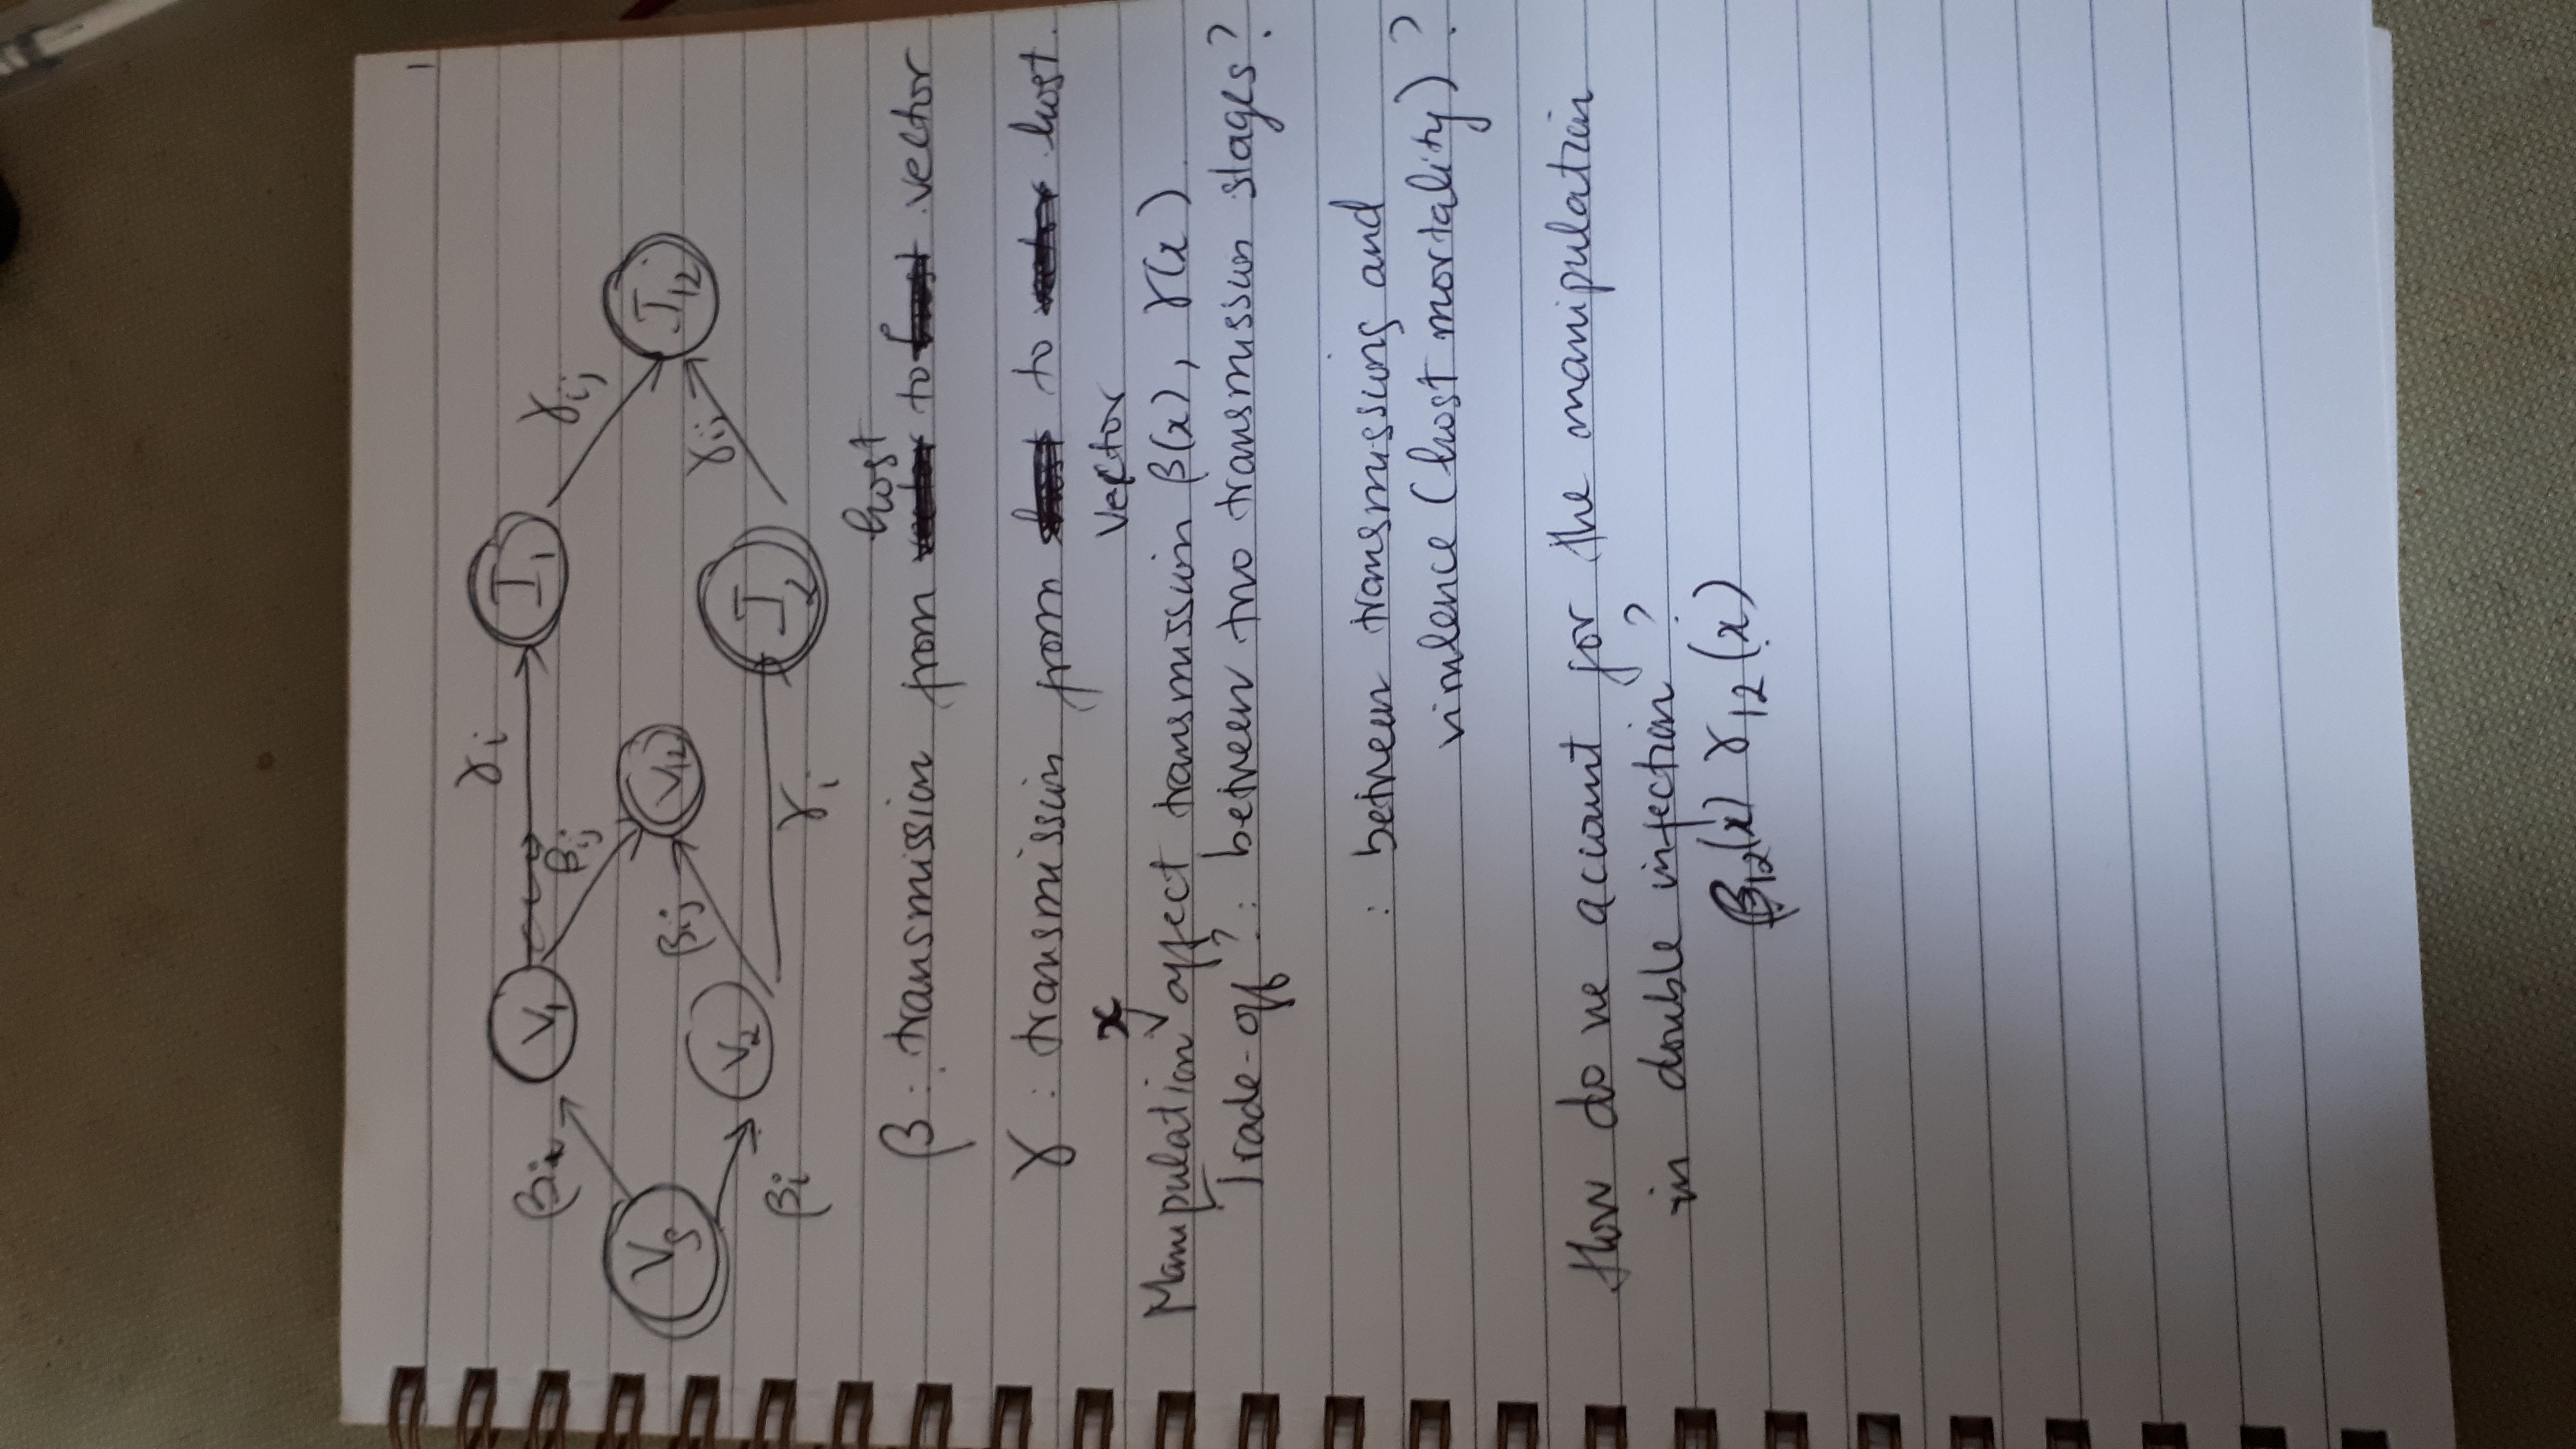 1
γi
βi V1 I1 γij
βij
VS V12 I12
βij γij
V2 I2
βi γi
host
β : transmission from to vector
γ : transmission from to host.
x vector
Manipulation affect transmission β(x), γ(x)
Trade-off ? : between two transmission stages ?
: between transmissions and
virulence (host mortality) ?
How do we account for the manipulation
in double infection ?
β12(x) γ12(x)